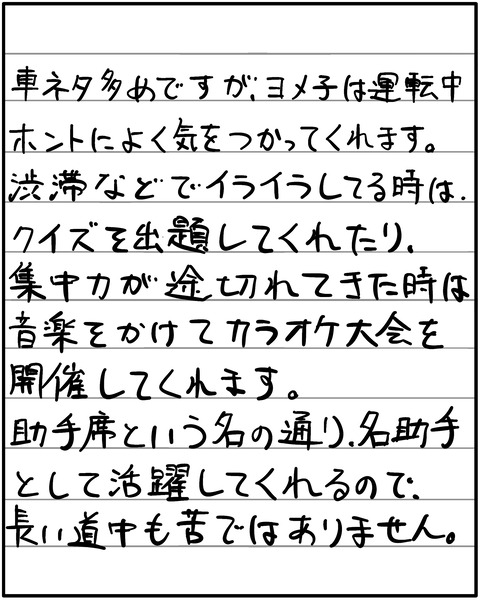 車ネタ多めですが、ヨメ子は運転中
ホントによく気をつかってくれます。
渋滞などでイライラしてる時は、
クイズを出題してくれたり、
集中力が途切れてきた時は
音楽をかけてカラオケ大会を
開催してくれます。
助手席という名の通り、名助手
として活躍してくれるので、
長い道中も苦ではありません。